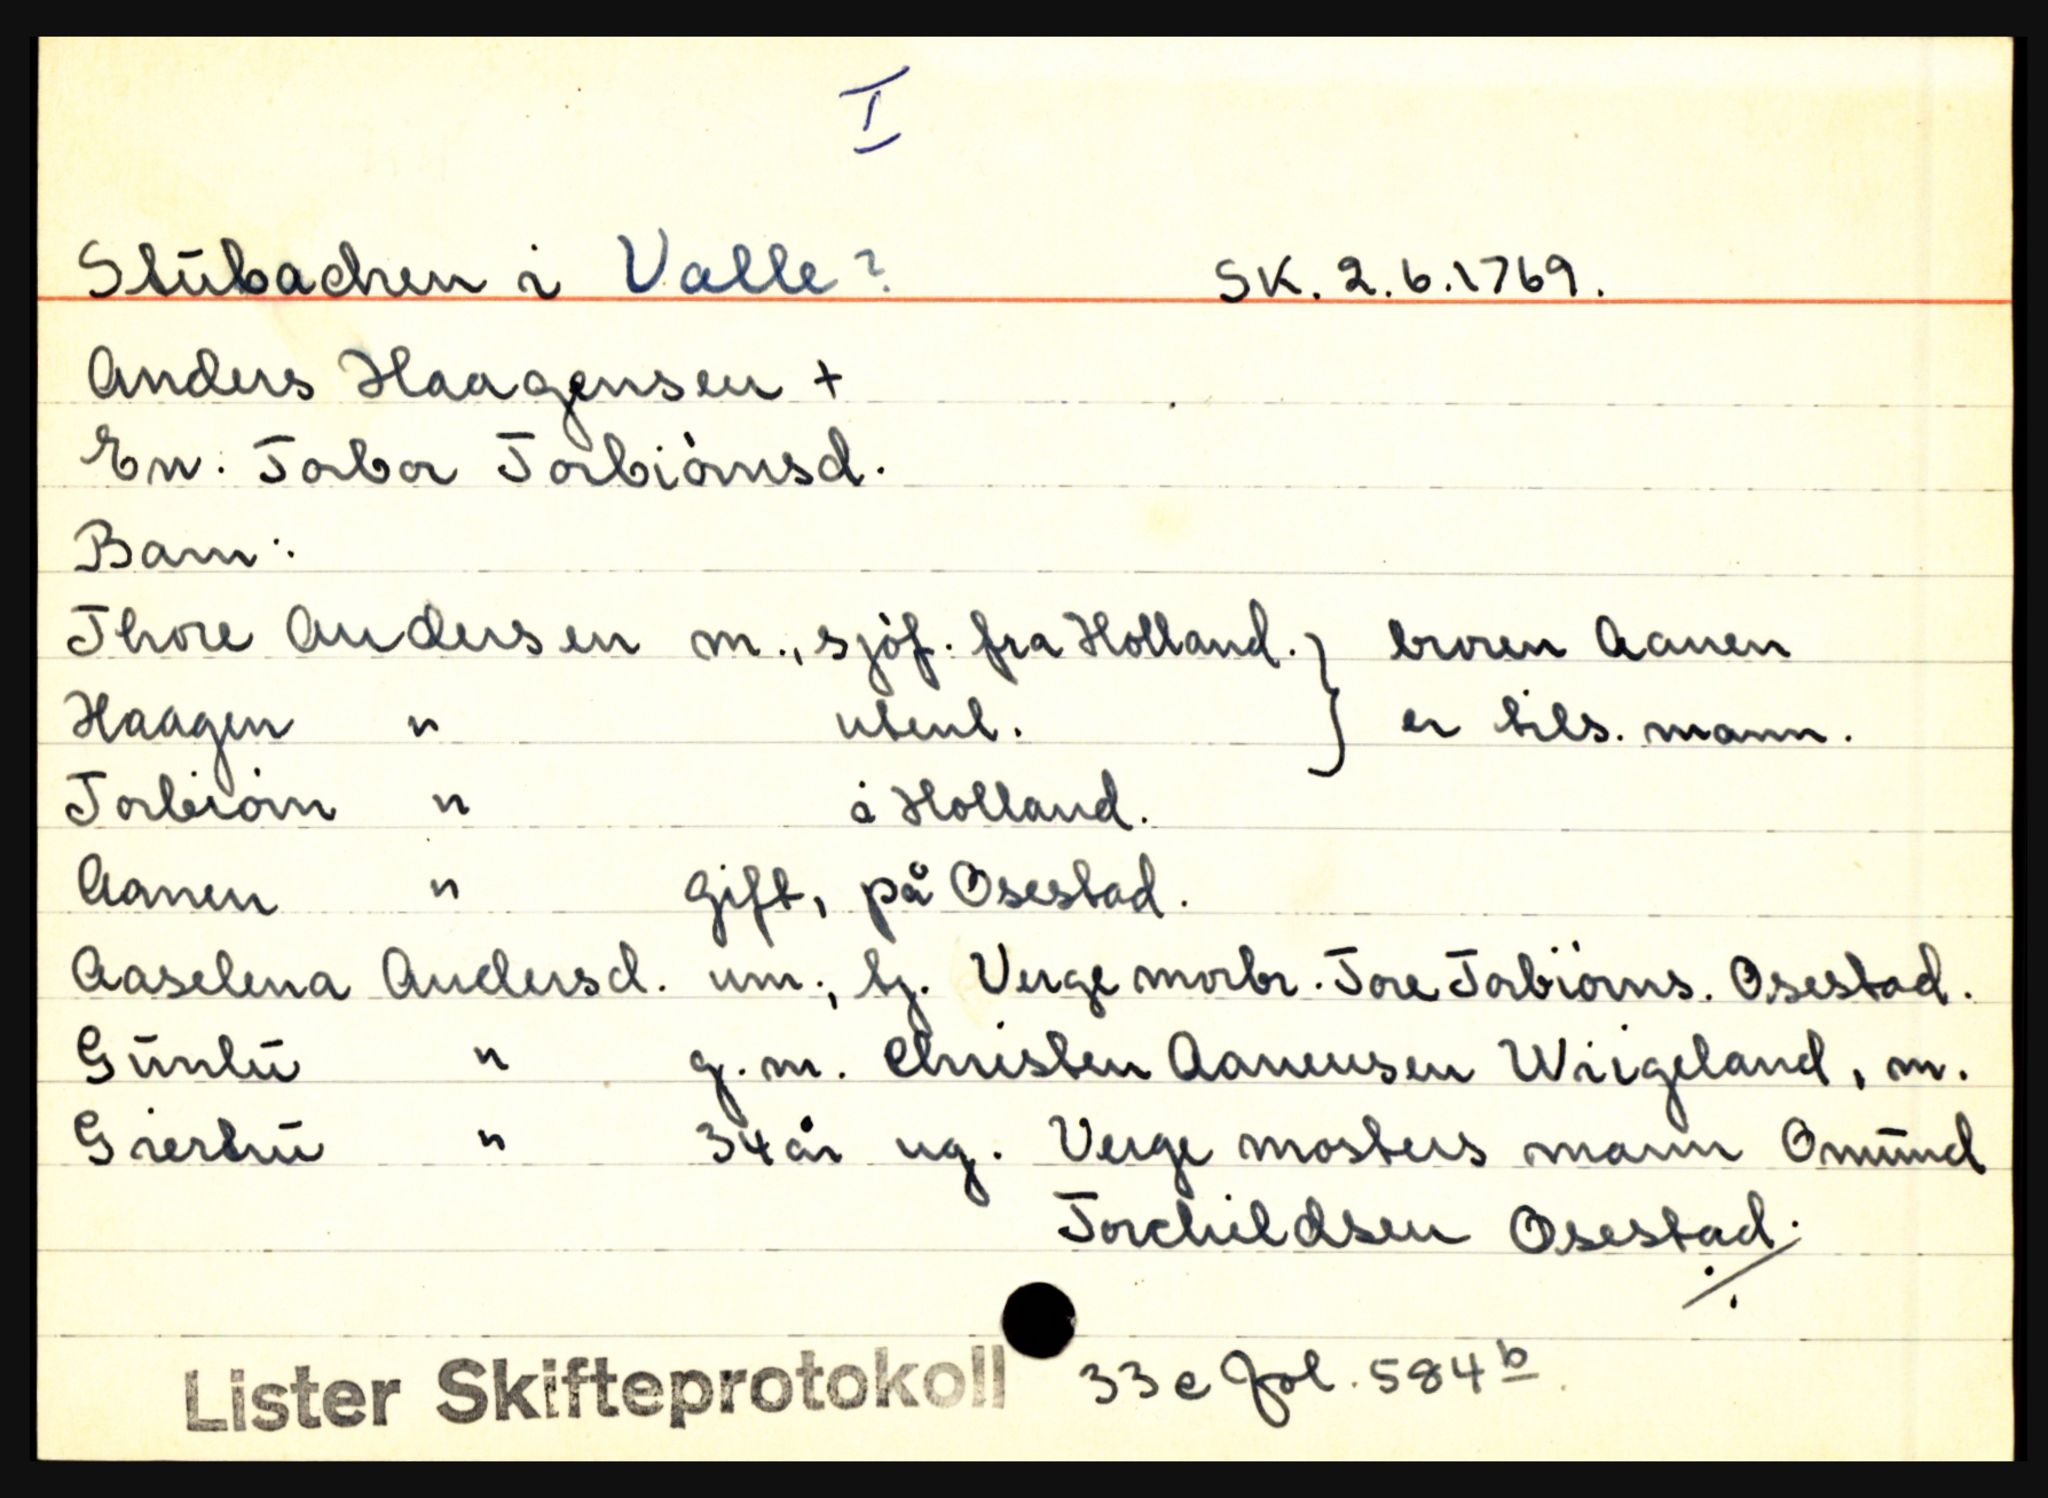 I
Stūbachen i Valle? SK. 2.6.1769.
Anders Haagensen +
En: Torbor Torbiörnsd.
Barn:
Thore Andersen m., sjöf. fra Holland. } broren Aanen
Haagen " utenl. } er tils. mann.
Torbiörn " i Holland.
Aanen " gift, på Osestad.
Aaselena Andersd. um., hj. Verge morbr. Tore Torbiörns. Osestad.
Gūnlū " g. m. Christen Aanensen Wiigeland, m.
Giertrū " 34 år ug. Verge mosters mann Omūnd
Torchildsen Osestad.
./.
Lister Skifteprotokoll 33 c fol. 584 b